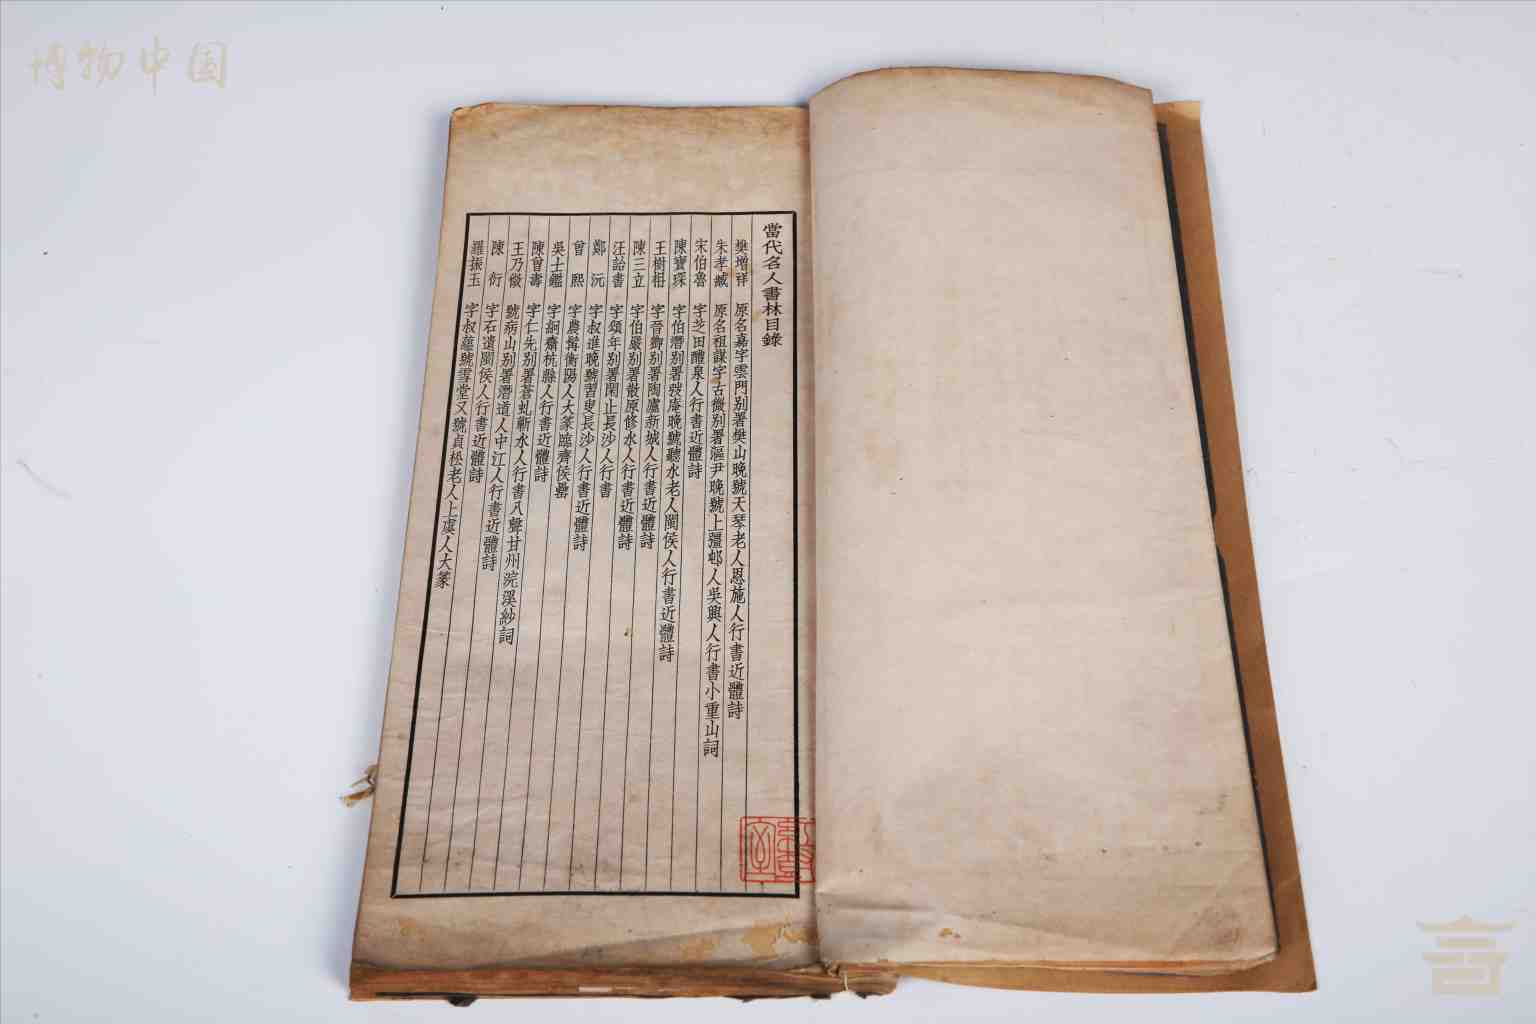 博物中国
當代名人書林目錄
樊增祥 原名嘉字雲門別署樊山晚號天琴老人恩施人行書近體詩
朱孝臧 原名祖謀字古微別署漚尹晚號上彊邨人吳興人行書小重山詞
宋伯魯 字芝田醴泉人行書近體詩
陳寶琛 字伯潛別署弢庵晚號聽水老人閩侯人行書近體詩
王樹枏 字晉卿別署陶廬新城人行書近體詩
陳三立 字伯嚴別署散原修水人行書近體詩
汪詒書 字頌年別署閑止長沙人行書
鄭沅 字叔進晚號習叟長沙人行書近體詩
曾熙 字農髯衡陽人大篆臨齊侯罍
吳士鑑 字絅齋杭縣人行書近體詩
陳曾壽 字仁先別署蒼虬蘄水人行書八聲甘州浣溪紗詞
王乃徵 號病山別署潛道人中江人行書近體詩
陳衍 字石遺閩侯人行書近體詩
羅振玉 字叔蘊號雪堂又號貞松老人上虞人大篆